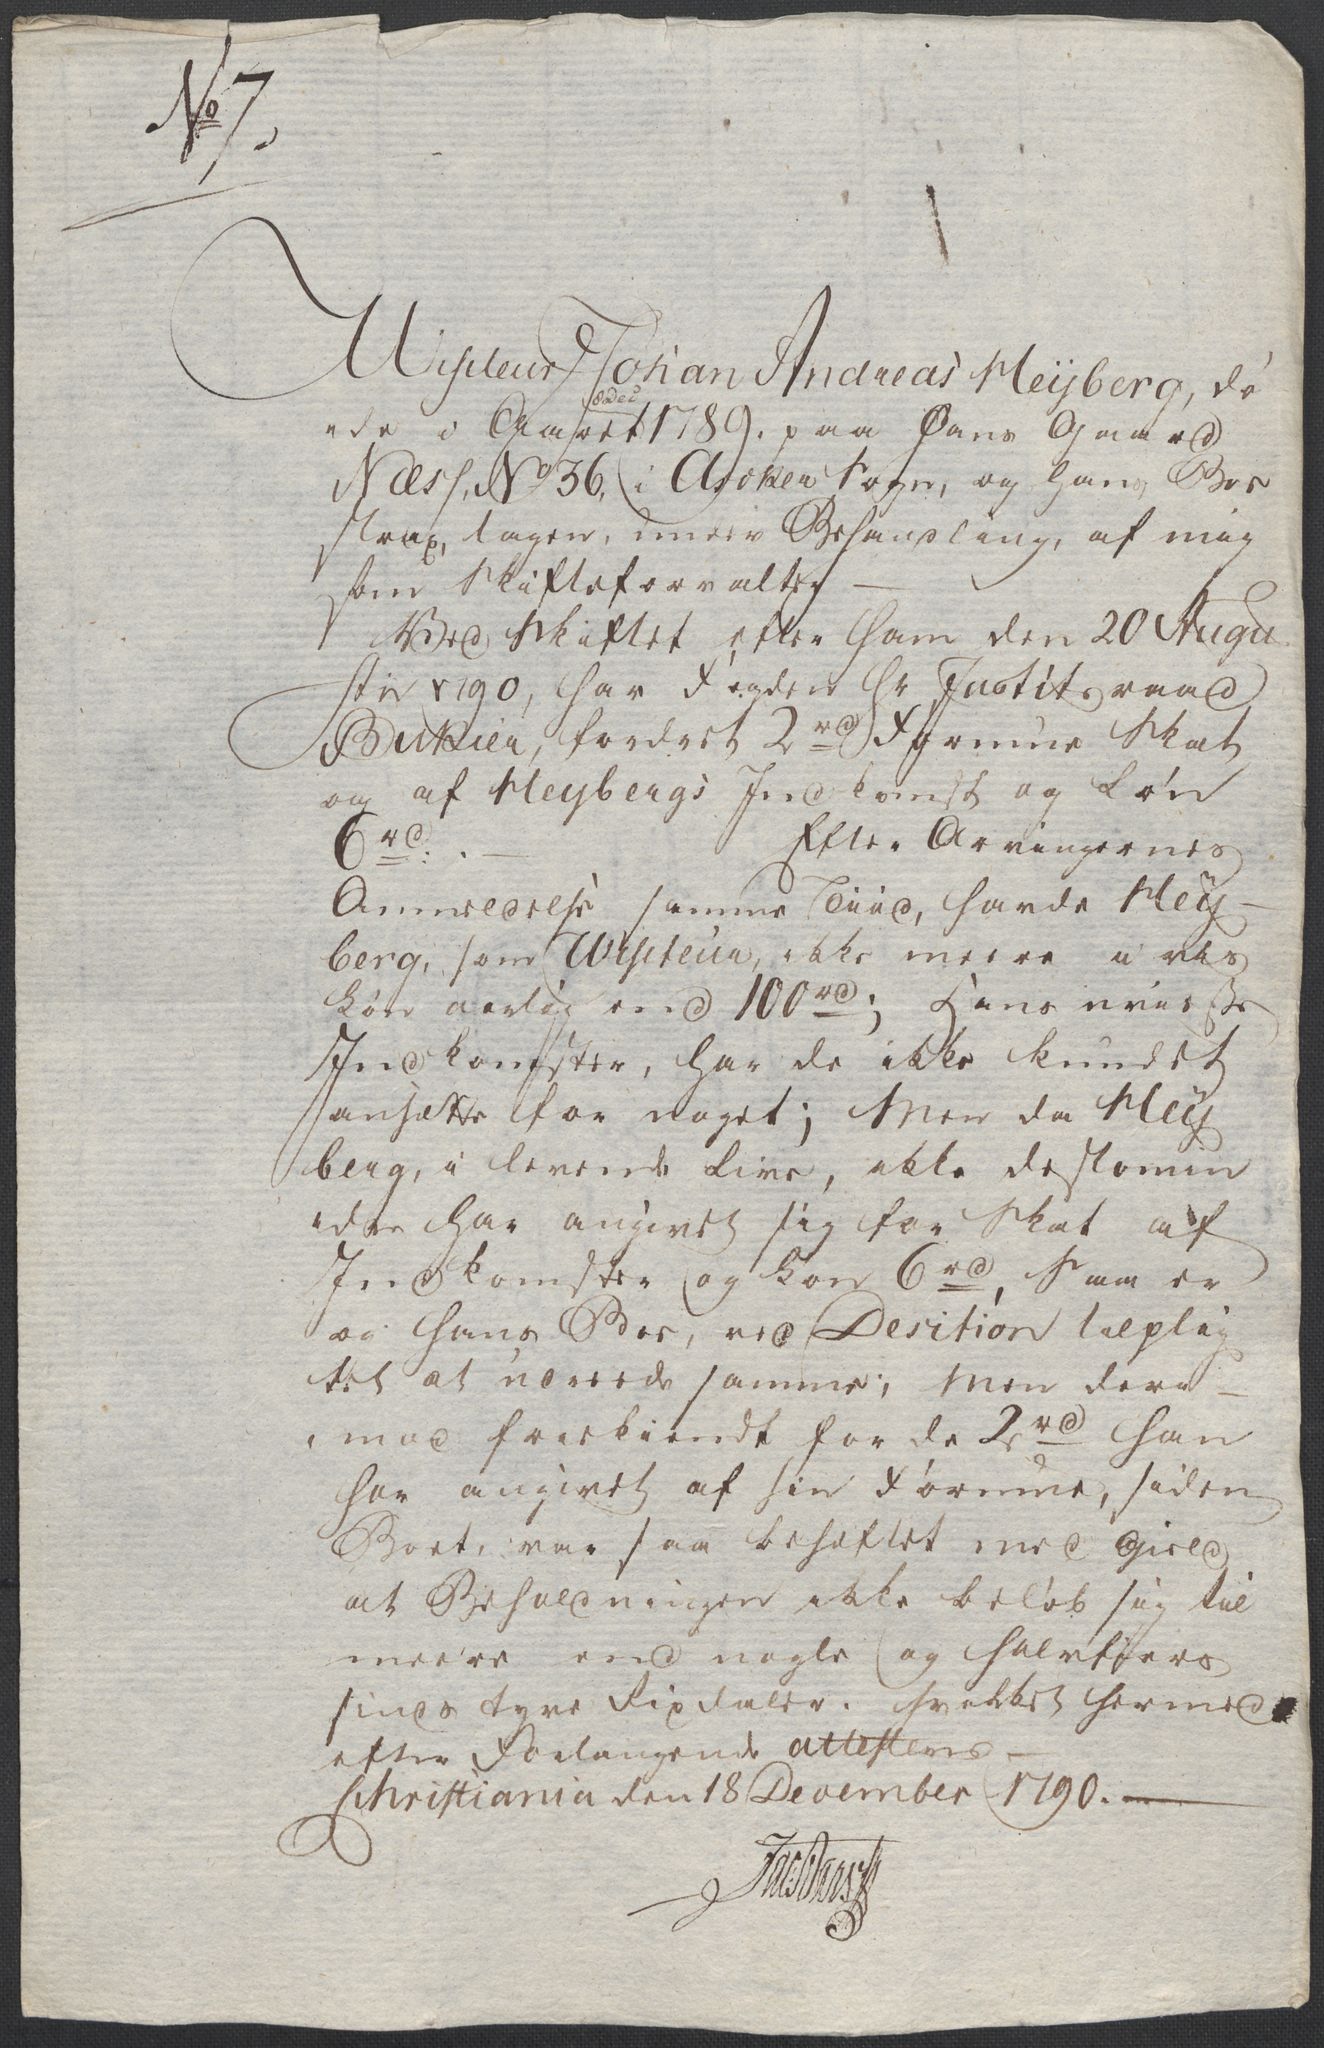 No 7.
Visiteur Johan Andreas Heÿberg, dö
ede i Aaret 1789. paa Gaard
Næss, No 36, i Asker Sogn, og hans Boe
strax, tagen, under Behandling, af mig
som Skifteforvalter —
Ved Skiftet efter ham den 20 Augu
sti 1790, har Fogden Hr Justitsraad
fordret 2 rd Formue Skat
og af Heÿbergs Indkomst og Løn
6 rd. . — Efter Arvingernes
Anmeldelse samme Tiid, havde Heÿ-
berg, som Visiteur, ikke meere i vis
Løn aarlig end 100 rd; Hans uvisse
Indkomster, har de ikke kundet
ansætte for noget; Men da Heÿ
berg, i levende Live, ikke destomin
dre har angivet sig for Skat af
Indkomster og Løn 6 rd, Saa er
og hans Boe, ved Desition tilplig
tet at udreede samme; Men der i-
mod frikiendt for de 2 rd han
har angivet af sin Formue, siden
Boet, var saa behæftet med Gield
at Beholdningen ikke beløb sig til
meere end nogle og halvtiers
sinds tyve Rixdaler. Hvilket hermed
efter Forlangende attesteres —
Christiania den 18 December 1790. —